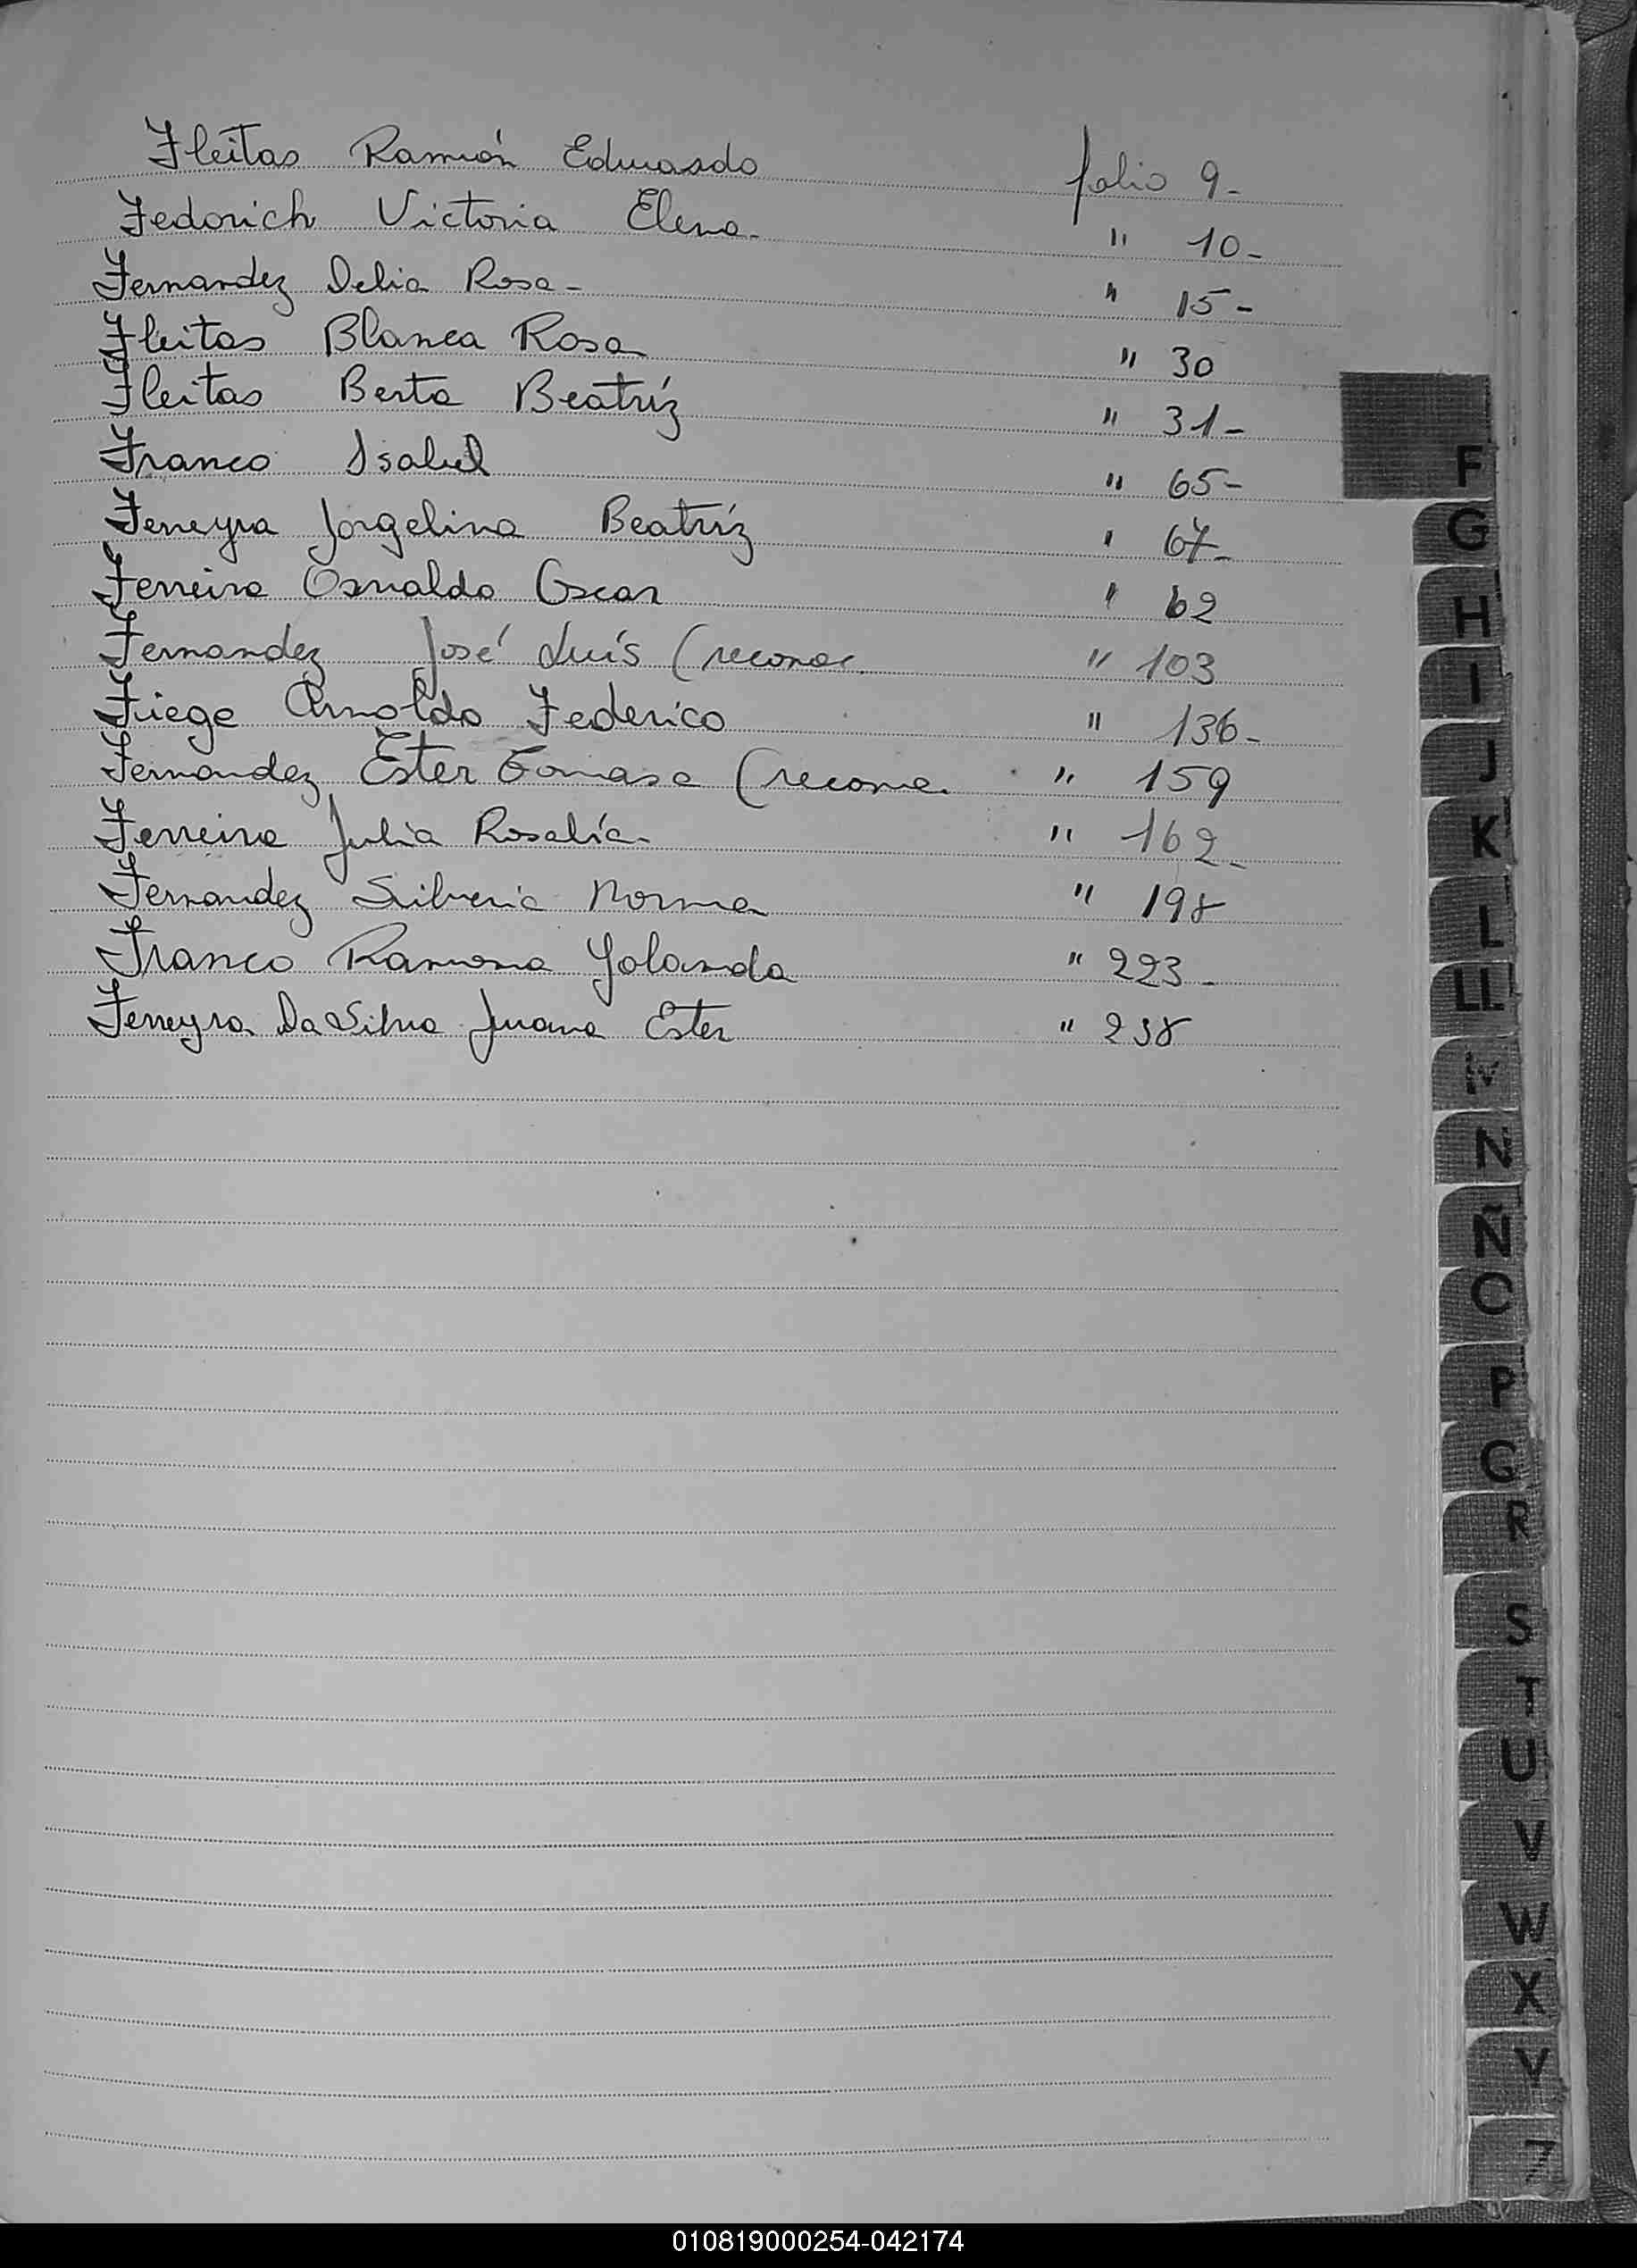 Fleitas Ramón Eduardo folio 9-
Fedorich Victoria Elena- " 10-
Fernandez Delia Rosa- " 15-
Fleitas Blanca Rosa " 30
Fleitas Berta Beatríz " 31-
Franco Isabel " 65-
Ferreyra Jorgelina Beatríz " 67-
Ferreira Osvaldo Oscar " 62
Fernandez José Luís (reconoc. " 103
Fiege Arnoldo Federico " 136-
Fernandez Ester Tomasa (recono. " 159
Ferreira Julia Rosalía- " 162-
Fernandez Silveria Norma " 198
Franco Ramona Yolanda " 223-
Ferreyra Da Silva Juana Ester " 238
F
G
H
I
J
K
L
LL
M
N
Ñ
O
P
Q
R
S
T
U
V
W
X
Y
Z
010819000254-042174